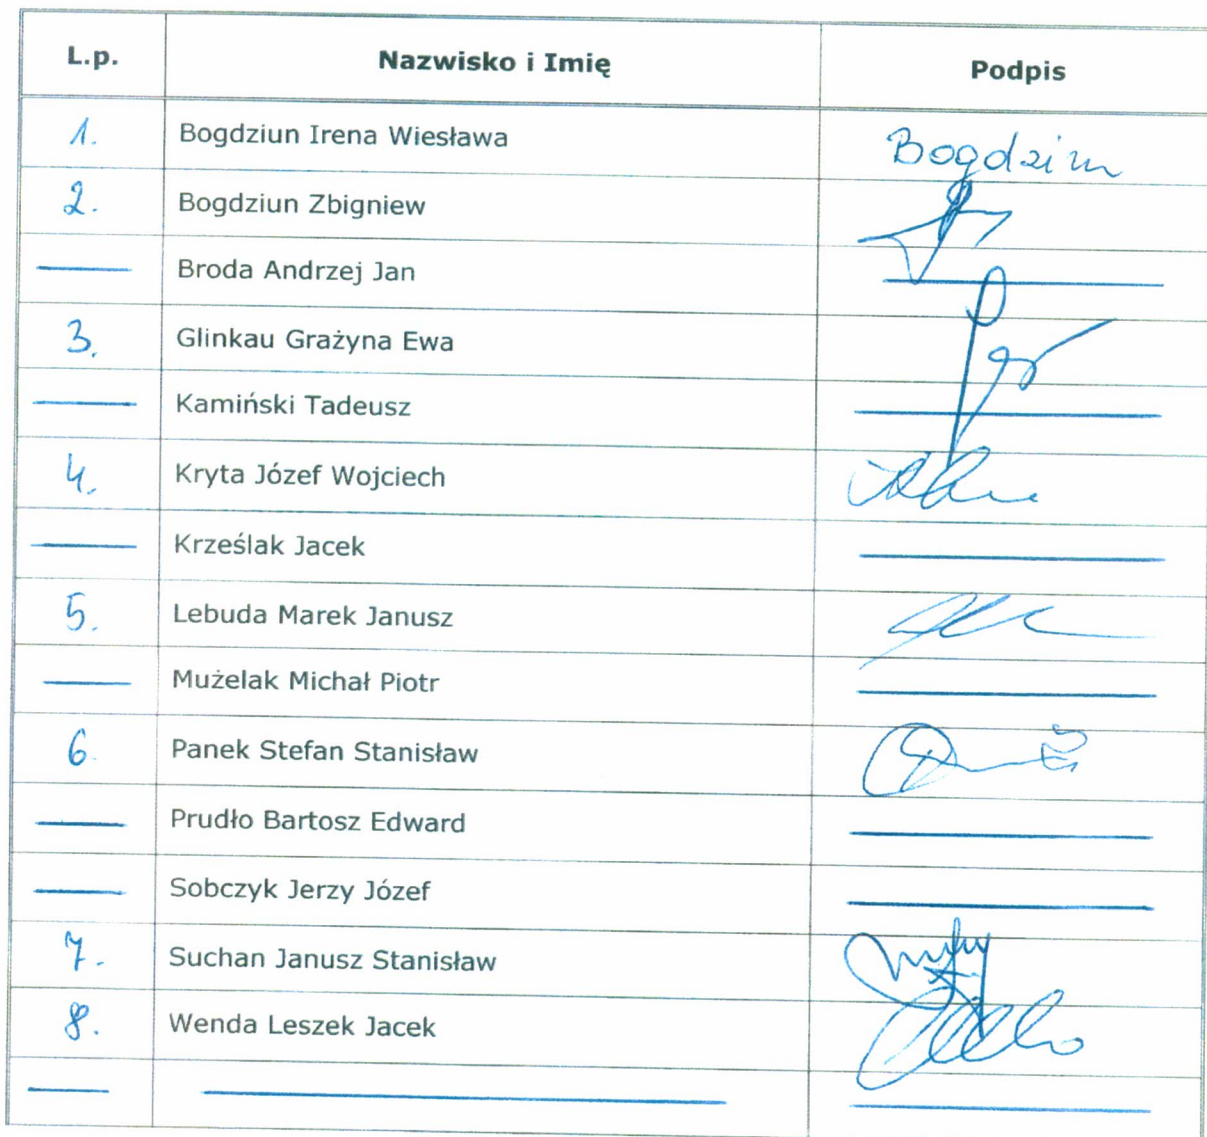 L.p. Nazwisko i Imię Podpis
1. Bogdziun Irena Wiesława Bogdziun
2. Bogdziun Zbigniew
Broda Andrzej Jan
3. Glinkau Grażyna Ewa
Kamiński Tadeusz
4. Kryta Józef Wojciech
Krześlak Jacek
5. Lebuda Marek Janusz
Mużelak Michał Piotr
6. Panek Stefan Stanisław
Prudło Bartosz Edward
Sobczyk Jerzy Józef
7. Suchan Janusz Stanisław
8. Wenda Leszek Jacek